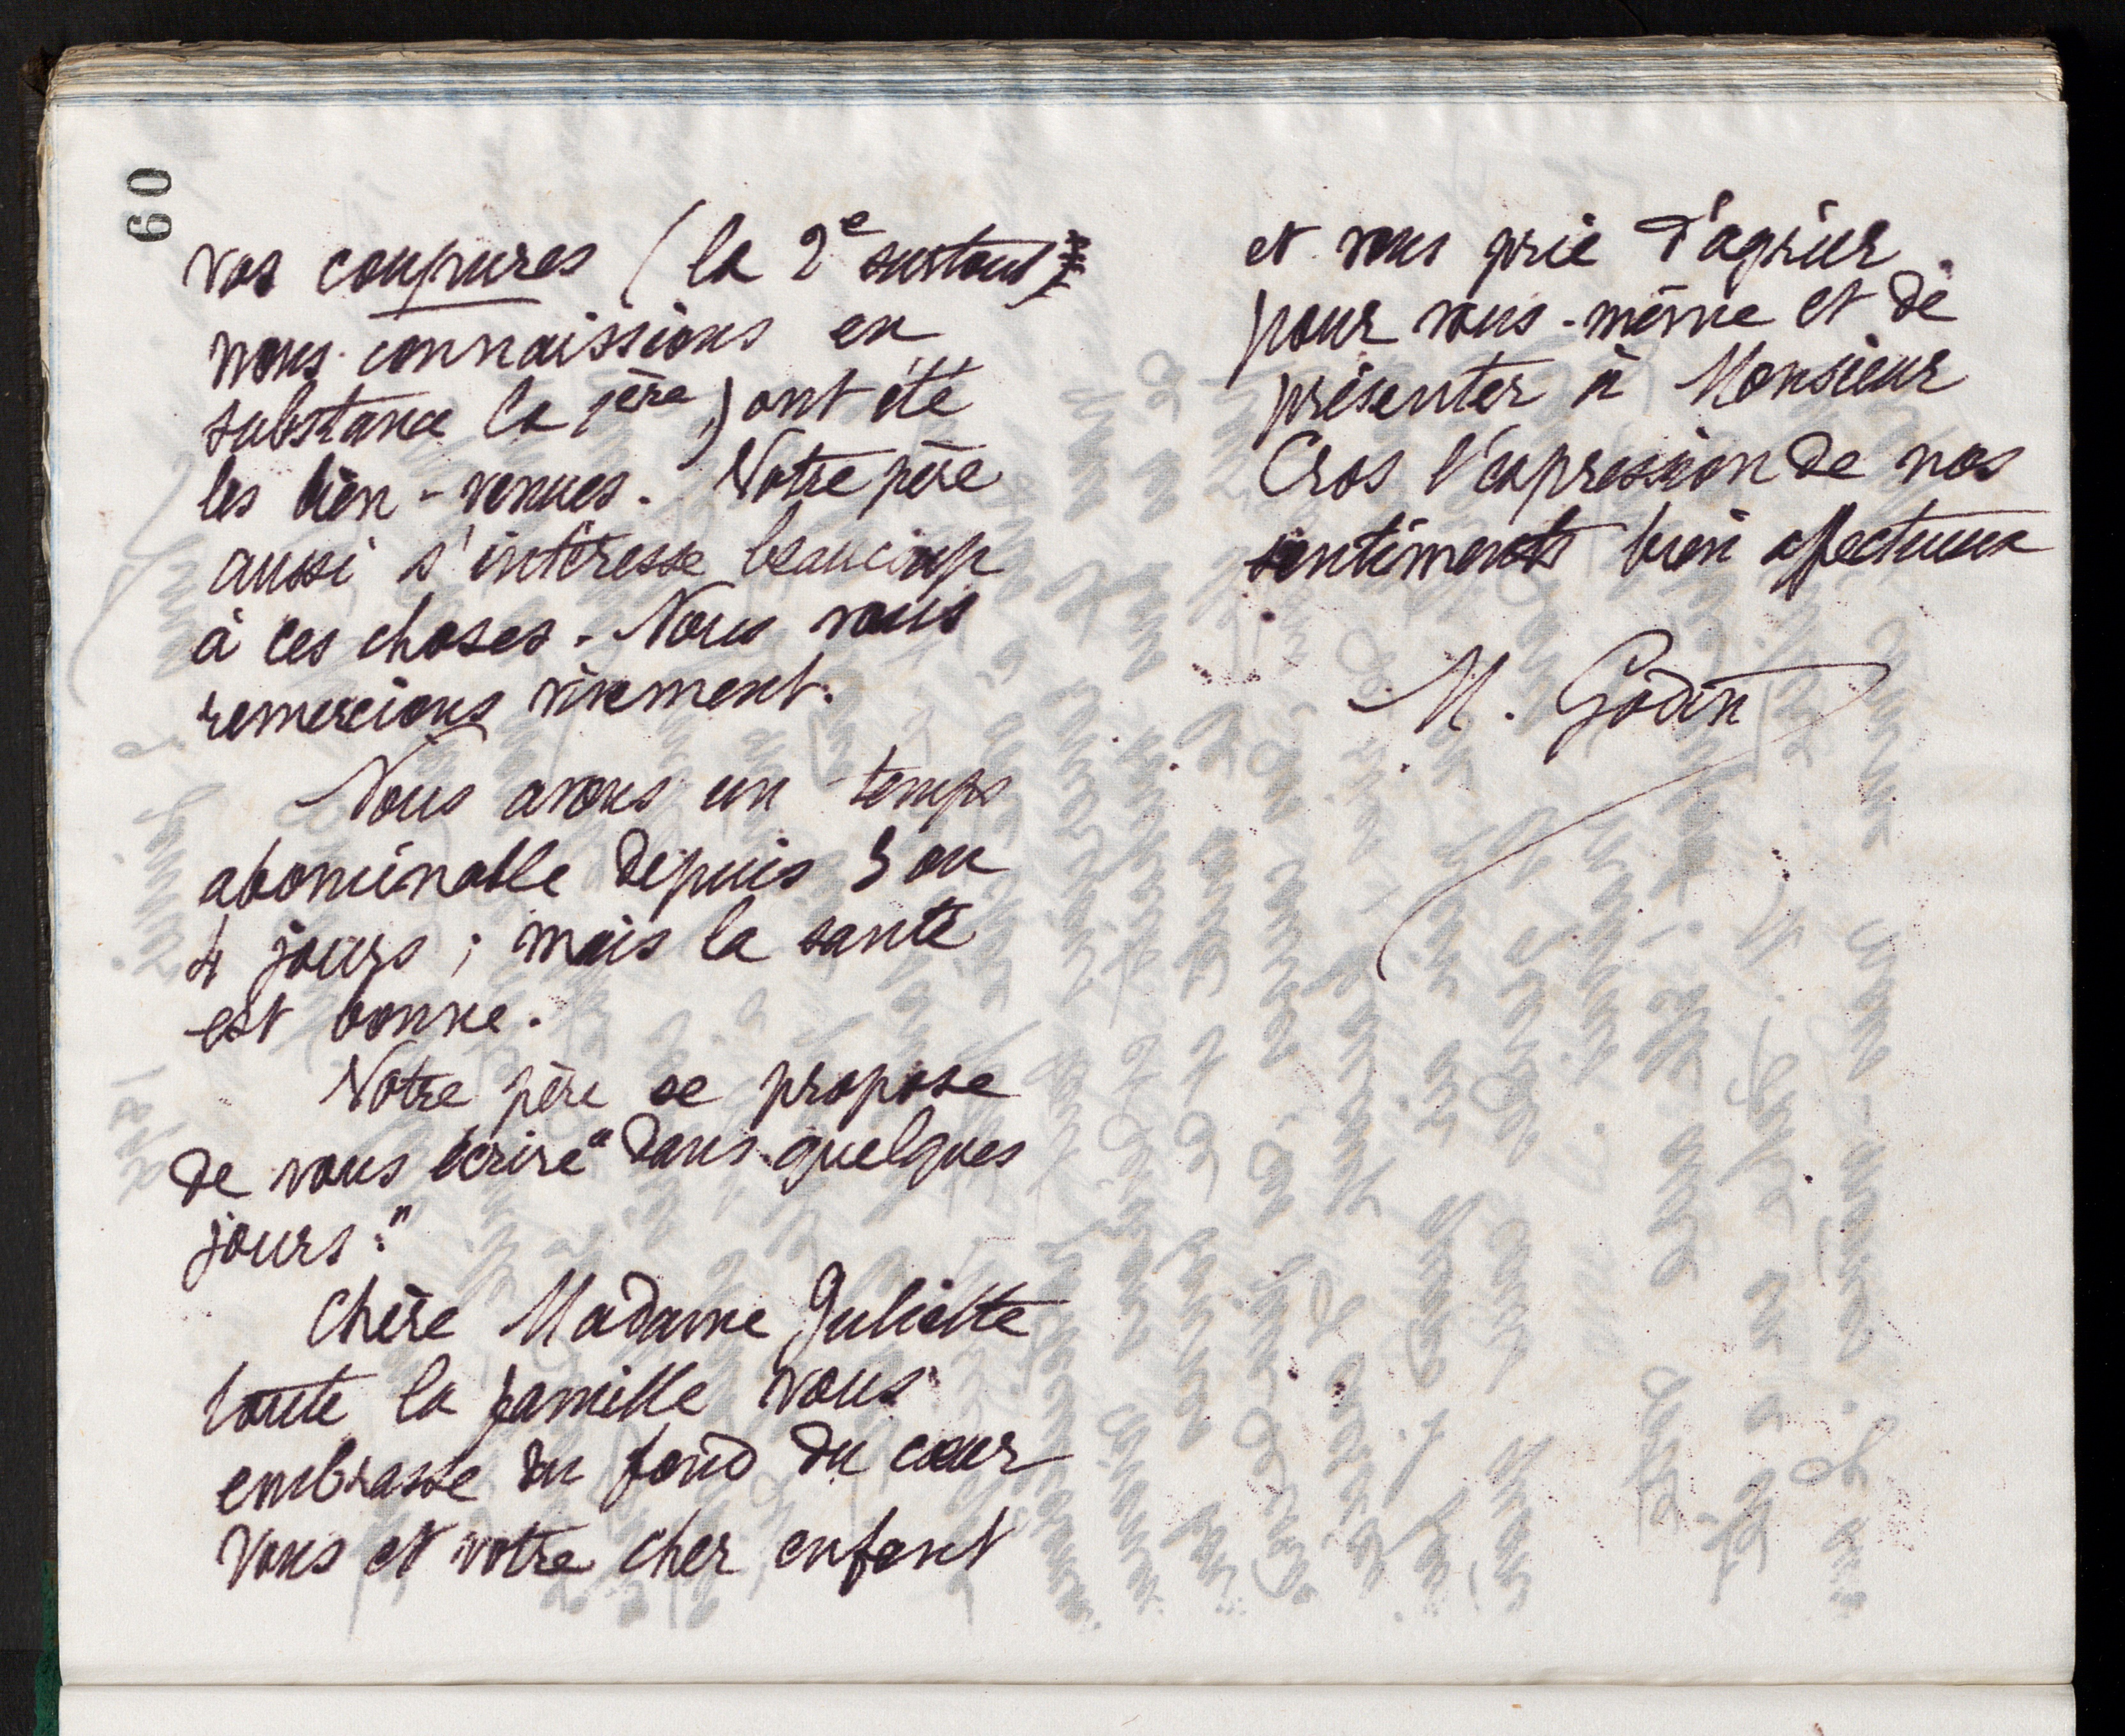 60
vos coupures (la 2e surtout;
nous connaissions en
substance la 1ère,) ont été
les bien-venues. Notre père
aussi s'intéresse beaucoup
à ces choses. Nous vous
remercions vivement.
Nous avons un temps
abominable depuis 3 ou
4 jours ; mais la santé
est bonne.
Notre père se propose
de vous écrire "dans quelques
jours."
Chère Madame Juliette
toute la famille vous
embrasse du fond du cœur
vous et votre cher enfant
et vous prie d'agréer
pour vous-même et de
présenter à Monsieur
Cros l'expression de nos
sentiments bien affectueux
M. Godin